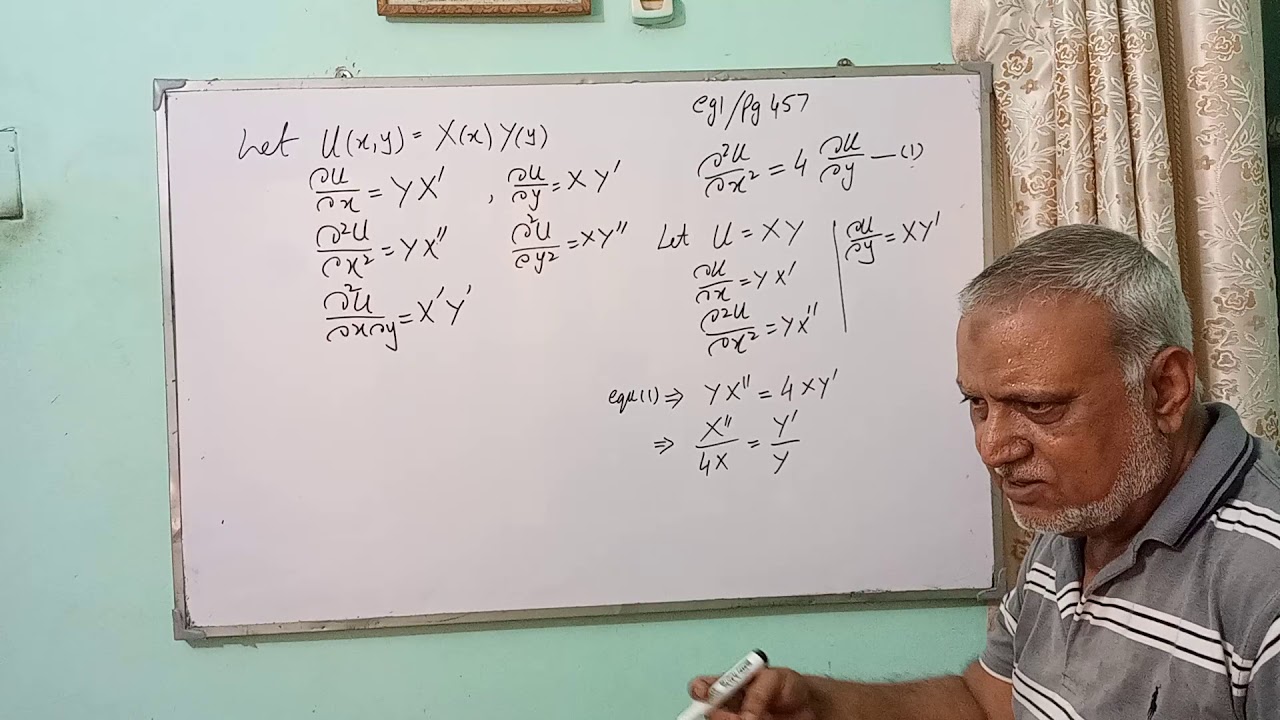 Let U(x,y) = X(x) Y(y)
∂U/∂x = YX′ , ∂U/∂y = XY′
∂²U/∂x² = YX″ ∂²U/∂y² = XY″
∂²U/∂x∂y = X′Y′
eg1/Pg 457
∂²U/∂x² = 4 ∂U/∂y —(1)
Let U = XY
∂U/∂x = YX′
∂²U/∂x² = YX″
∂U/∂y = XY′
equ(1) ⇒ YX″ = 4XY′
⇒ X″/4X = Y′/Y